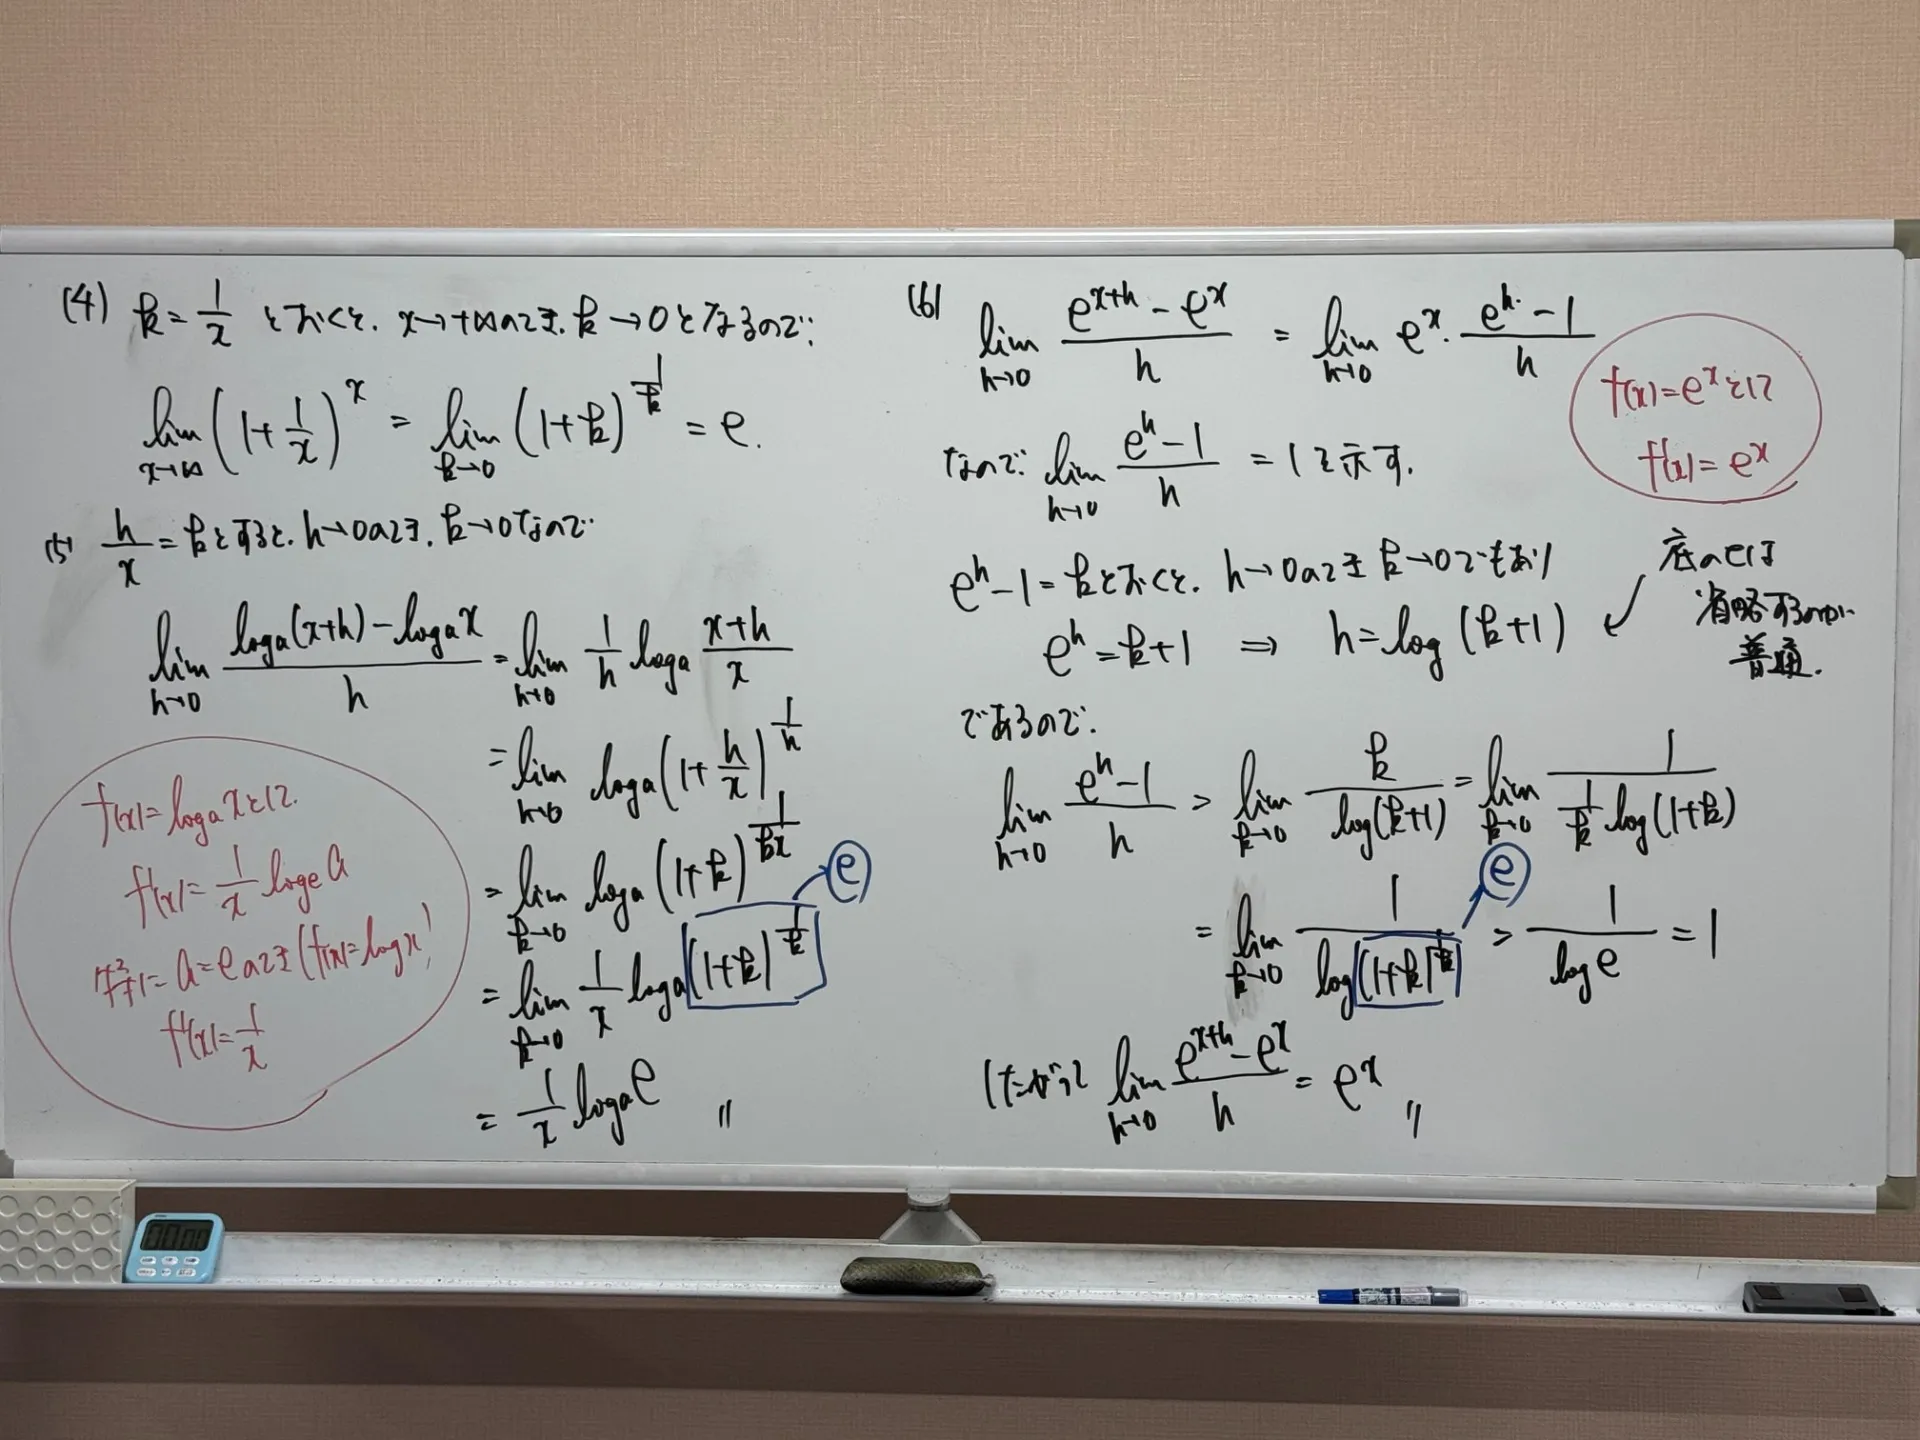 (4) k = 1/x とおくと、x→+∞のとき、k→0となるので、
lim x→∞ (1+1/x)^x = lim k→0 (1+k)^(1/k) = e.
(5) h/x = kとすると、h→0のとき、k→0なので
lim h→0 (log_a(x+h) - log_a x)/h = lim h→0 1/h log_a (x+h)/x
= lim h→0 log_a (1+h/x)^(1/h)
= lim k→0 log_a (1+k)^(1/kx)
e
= lim k→0 1/x log_a (1+k)^(1/k)
= 1/x log_a e 〃
f(x) = log_a x として.
f'(x) = 1/x log_e a
a = e のとき (f(x) = log x)
f'(x) = 1/x
(6) lim h→0 (e^(x+h) - e^x)/h = lim h→0 e^x · (e^h - 1)/h
f(x) = e^x として
f'(x) = e^x
なので lim h→0 (e^h - 1)/h = 1 を示す.
e^h - 1 = kとおくと、h→0のとき k→0でもあり
e^h = k+1 ⇒ h = log (k+1)
底のeは
省略するのが
普通.
であるので.
lim h→0 (e^h - 1)/h = lim k→0 k/log(k+1) = lim k→0 1/(1/k log(1+k))
e
= lim k→0 1/log(1+k)^(1/k) = 1/log e = 1
したがって lim h→0 (e^(x+h) - e^x)/h = e^x 〃